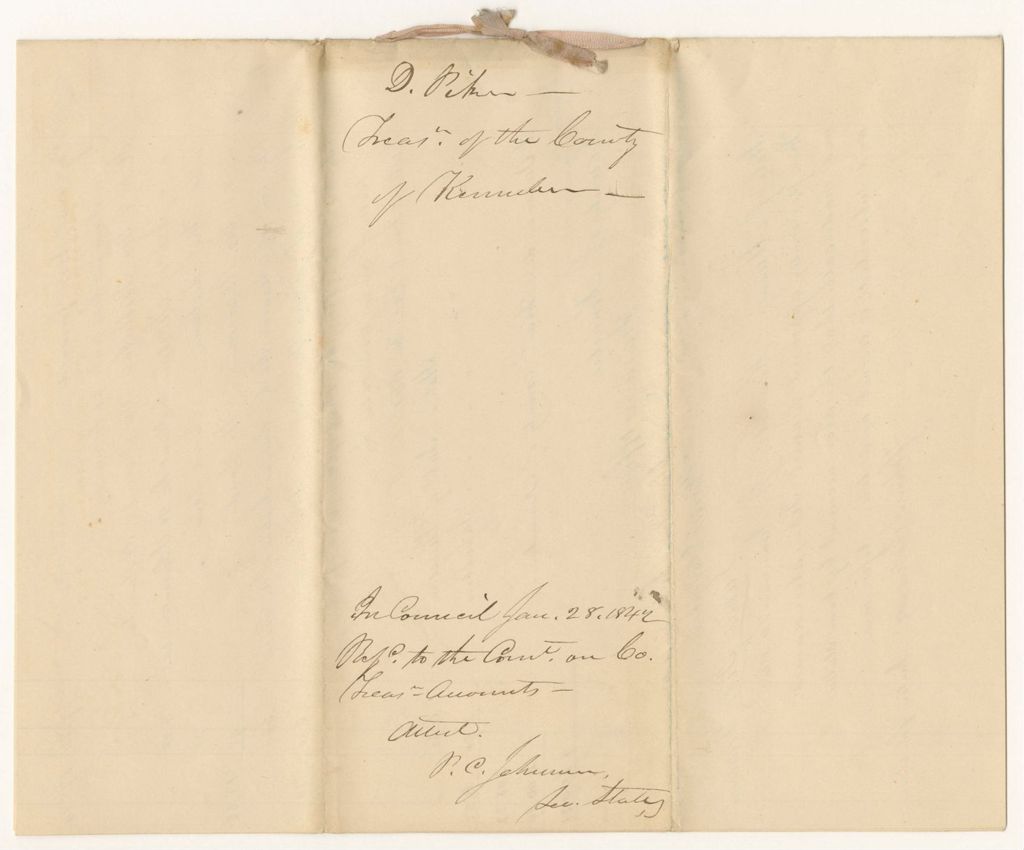 D. Pike —
Treasr. of the County
of Kennebec —
In Council Jan. 28. 1842
Refd. to the Comt. on Co.
Treasr Accounts —
Attest.
P. C. Johnson,
Sec. State